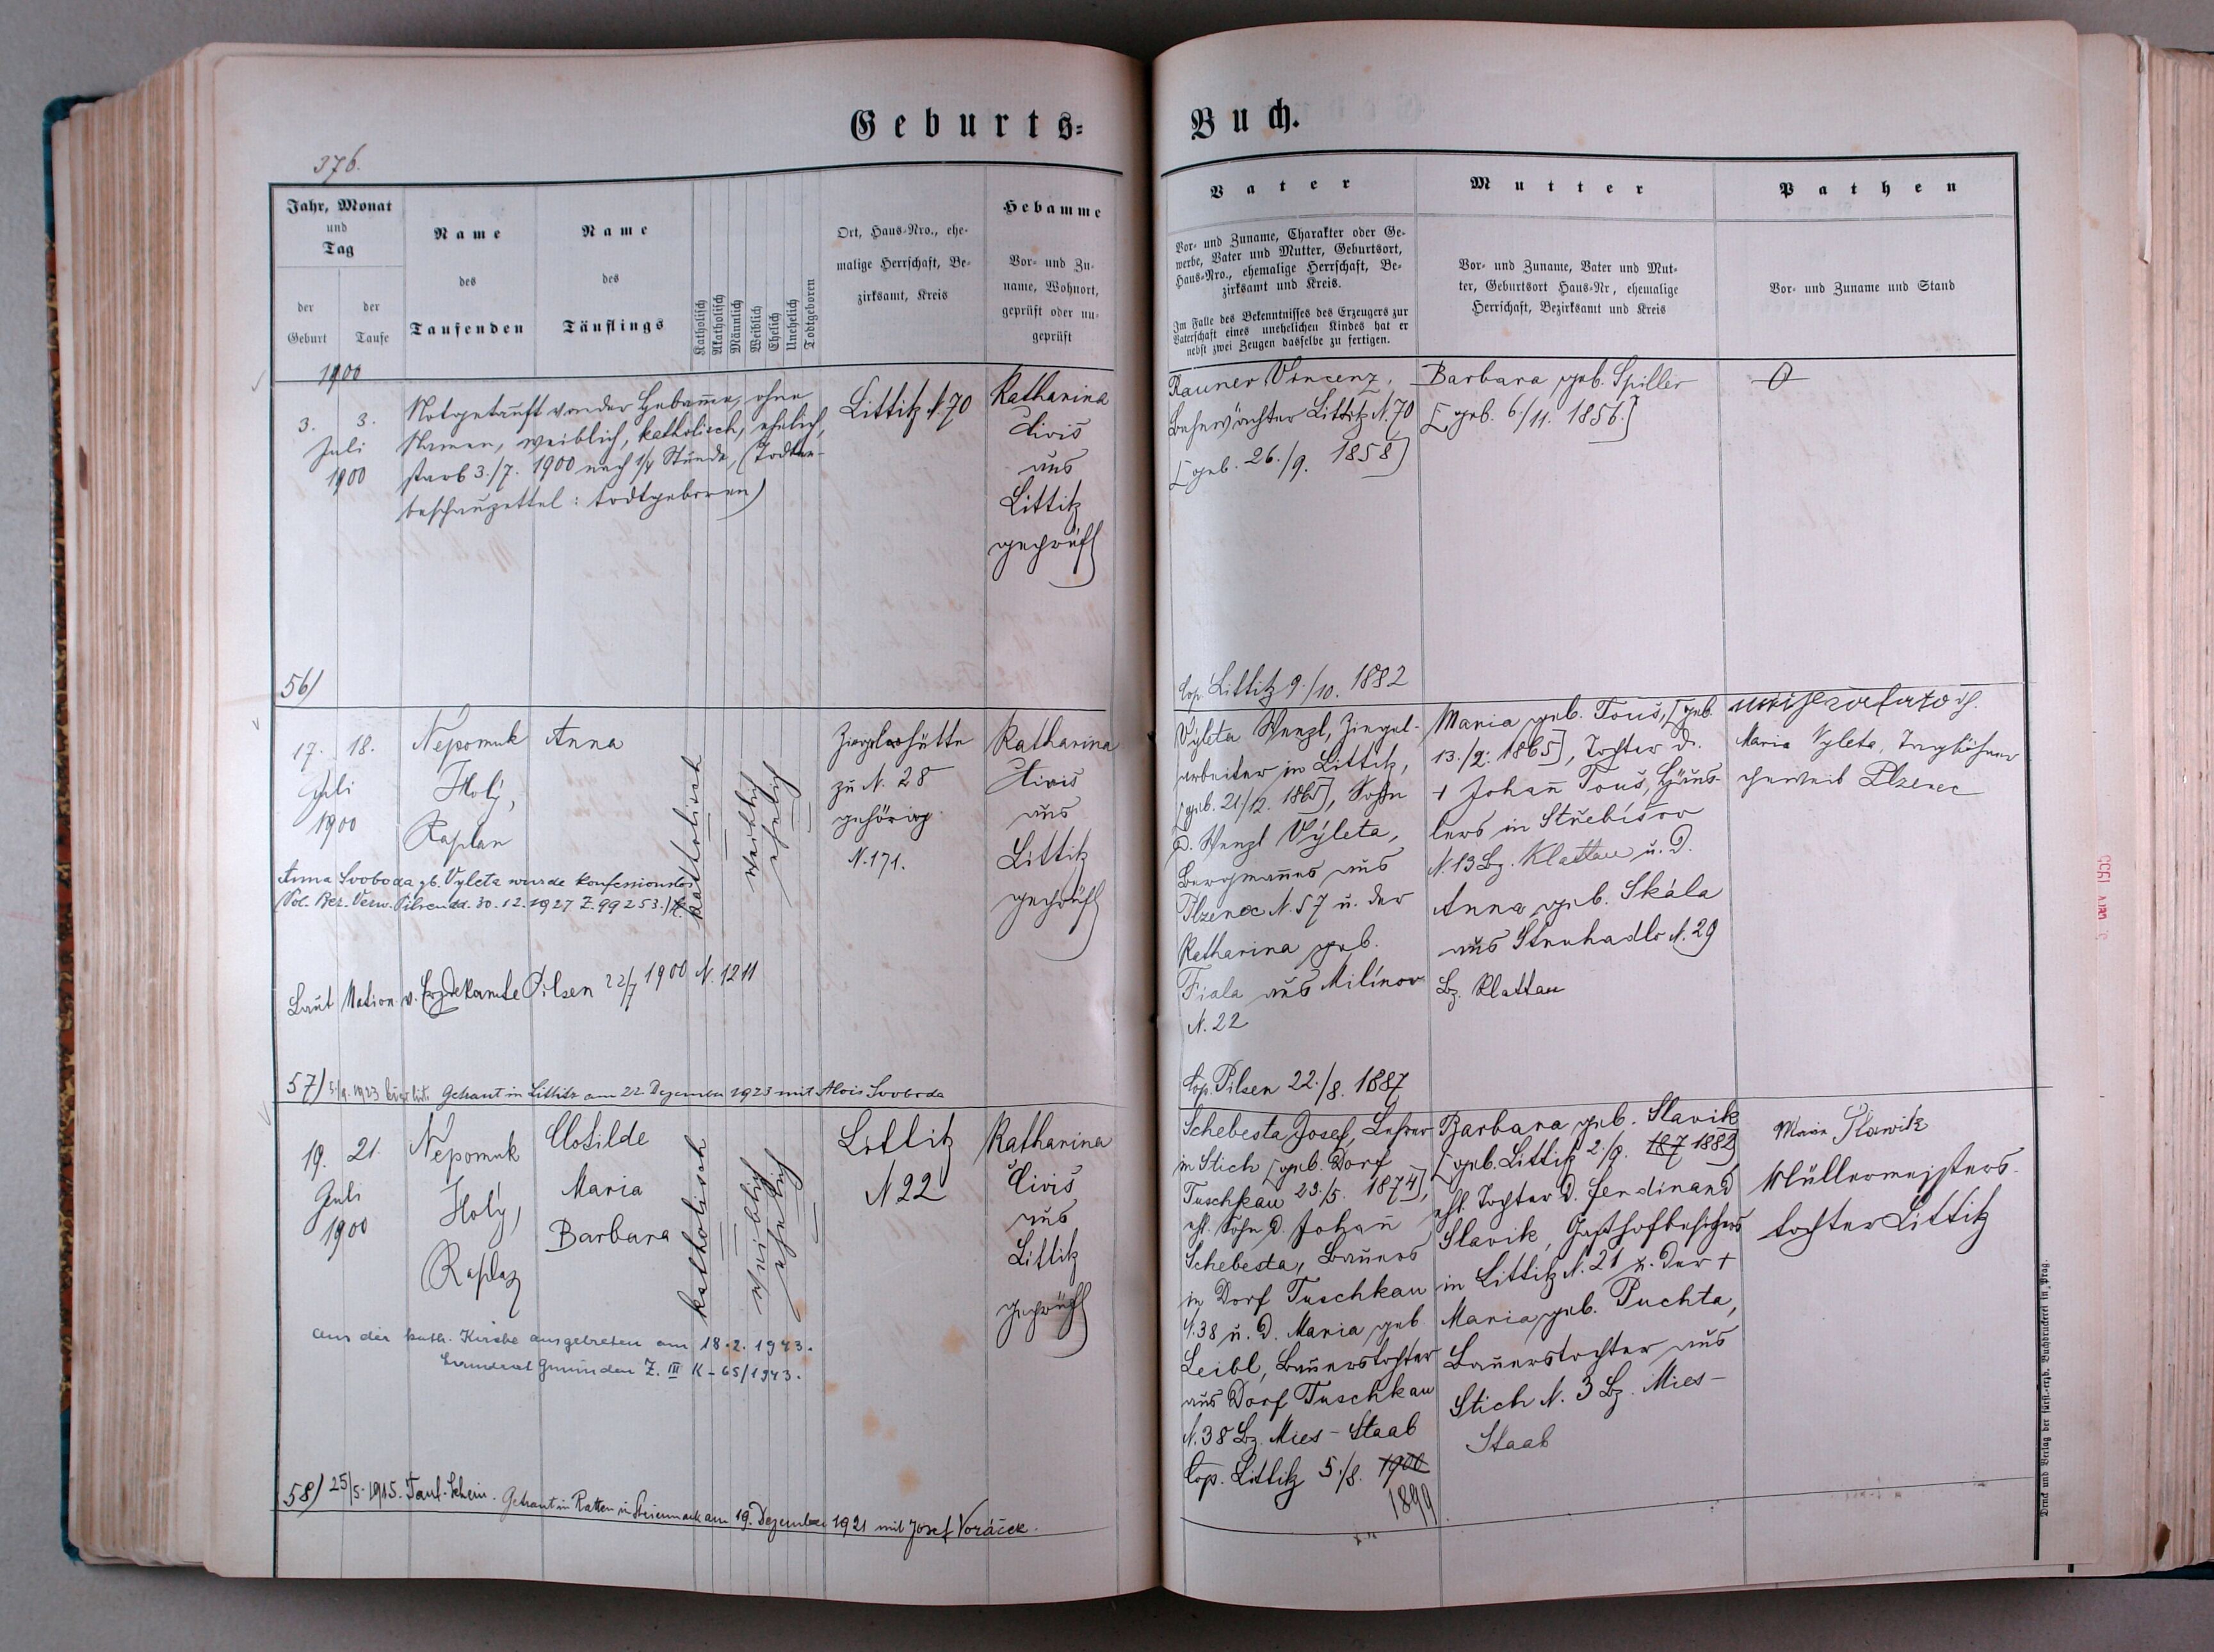 Geburts-
Buch.
376.
Jahr, Monat
und
Tag
der
Geburt
der
Taufe
Name
des
Taufenden
Name
des
Täuflings
Katholisch
Akatholisch
Männlich
Weiblich
Ehelich
Unehelich
Todtgeboren
Ort, Haus-Nro., ehe-
malige Herrschaft, Be-
zirksamt, Kreis
Hebamme
Vor- und Zu-
name, Wohnort,
geprüft oder un-
geprüft
Vater
Vor- und Zuname, Charakter oder Ge-
werbe, Vater und Mutter, Geburtsort,
Haus-Nro., ehemalige Herrschaft, Be-
zirksamt und Kreis.
Im Falle des Bekenntnisses des Erzeugers zur
Vaterschaft eines unehelichen Kindes hat er
nebst zwei Zeugen dasselbe zu fertigen.
Mutter
Vor- und Zuname, Vater und Mut-
ter, Geburtsort Haus-Nr, ehemalige
Herrschaft, Bezirksamt und Kreis
Pathen
Vor- und Zuname und Stand
1900
3. 3.
Juli
1900
Notgetauft von der Hebamme, ohne
Namen, weiblich, katholisch, ehelich,
starb 3./7. 1900 nach 1/4 Stunde, (Todten-
beschauzettel: todtgeboren)
Littitz N. 70
Katharina
Civis
aus
Littitz
geprüft
Rauner Vincenz,
Bahnwächter Littitz N. 70
[geb. 26./9. 1858]
Cop. Littitz 9./10. 1882
Barbara geb. Spiller
[geb. 6/11. 1856.]
0
56)
17. 18.
Juli
1900
Nepomuk
Holý,
Kaplan
Anna
katholisch
weiblich
ehelich
Ziegelhütte
zu N. 28
gehörig
N. 171.
Katharina
Civis
aus
Littitz
geprüft
Anna Svoboda gb. Vyleta wurde konfessionslos
(Pol. Bez. Verw. Pilsen dd. 30.12.1927 Z. 99253.)
Laut Nation v. Erzdekanate Pilsen 22/7 1900 N. 1211
Výleta Wenzl, Ziegel-
arbeiter in Littitz,
[geb. 21/12. 1865], Sohn
d. Wenzl Výleta,
Bergmannes aus
Plzenec N. 57 u. der
Katharina geb.
Fiala aus Milínov
N. 22
Cop. Pilsen 22./8. 1887
Maria geb. Touš, [geb.
13./2. 1865], Tochter d.
+ Johann Touš, Häus-
lers in Střebíšov
N. 13 Bz. Klattau u. d.
Anna geb. Skála
aus Struhadlo N. 29
Bz. Klattau
Maria Vyleta, Taglöhners
eheweib Plzenec
57) 5/9. 1923 Getraut in Littitz am 22. Dezember 1923 mit Alois Svoboda
19. 21.
Juli
1900
Nepomuk
Holý,
Kaplan
Clotilde
Maria
Barbara
katholisch
weiblich
ehelich
Littitz
N 22
Katharina
Civis
aus
Littitz
geprüft
Aus der kath. Kirche ausgetreten am 18.2.1943.
Landrat Gmunden Z. III K-65/1943.
Schebesta Josef, Lehrer
in Stich [geb. Dorf
Tuschkau 23./5. 1874],
ehl. Sohn d. Johann
Schebesta, Bauers
in Dorf Tuschkau
N. 38 u. d. Maria geb.
Leibl, Bauerstochter
aus Dorf Tuschkau
N. 38 Bz. Mies-Staab
Cop. Littitz 5./8. 1900
1899
Barbara geb. Slavik
[geb. Littitz 2./9. 187 1882]
ehl. Tochter d. Ferdinand
Slavik, Gasthofbesitzers
in Littitz N. 21 u. der +
Maria geb. Puchta,
Bauerstochter aus
Stich N. 3 Bz. Mies-
Staab
Marie Slawik
Müllermeisters-
tochter Littitz
58) 25/5. 1915. Tauf-Schein. Getraut in Ratten in Steiermark am 19. Dezember 1921 mit Josef Voráček.
Druck und Verlag der fürst.-erzb. Buchdruckerei in Prag.